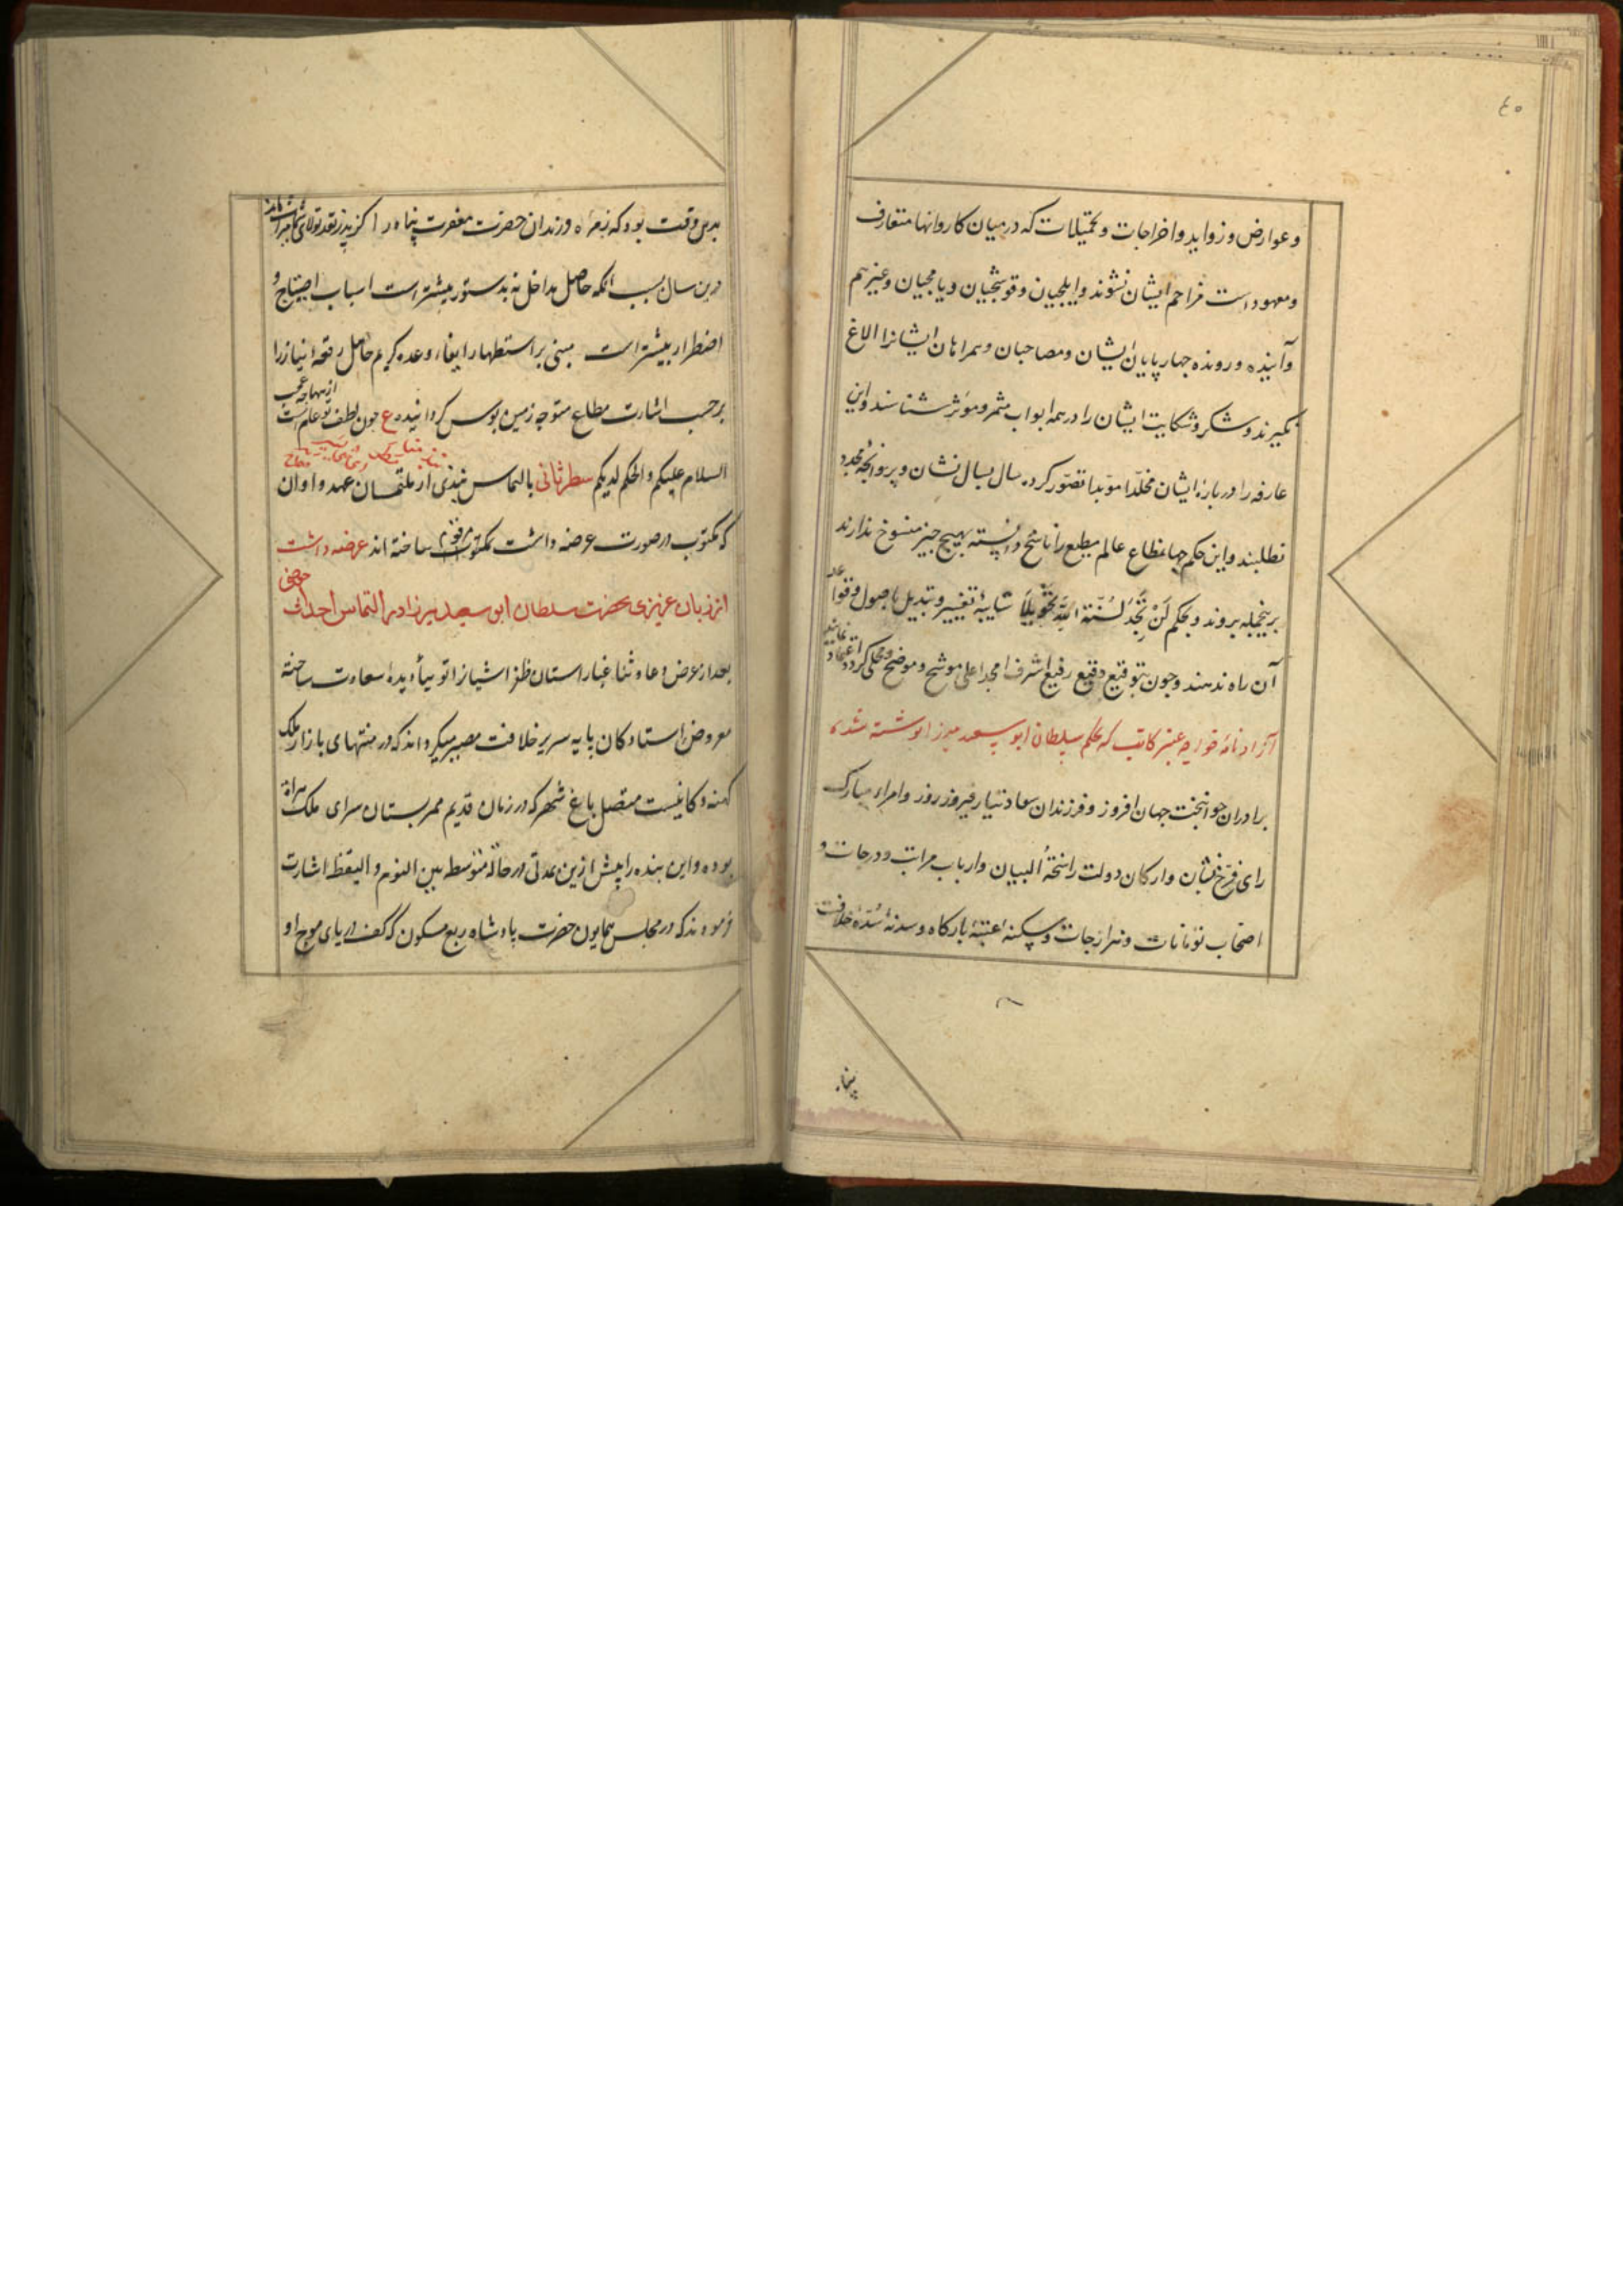 ٤٠
و عوارض و زواید و اخراجات و تحمیلات که در میان کاروانها متعارف
و معهود است مزاحم ایشان نشوند و ایلچیان و قوشچیان و یامچیان و غیرهم
و آینده و رونده چهارپایان ایشان و مصاحبان و همراهان ایشانرا الاغ
نگیرند و شکر و شکایت ایشان را در همه ابواب مثمر و موثر شناسند و این
عارفه را درباره ایشان مخلّدا موّبدا تصّور کرده سال بسال نشان و پروانچهٔ مجدد
نطلبند و این حکم جهانمطاع عالم مطیع را ناسخ دانسته بهیچ چیز منسوخ ندارند
برینجمله بروند و بحکم لَنْ تَجِدَ لِسُنَّةِ اللهِ تَحْوِيلًا شایبهٔ تغییر و تبدیل باصول و قواعد
آن راه ندهند و چون بتوقیع وقیع رفیع اشرف امجد اعلی موشح و موضح و محلی گردد اعتماد نمایند
آزادنامهٔ خواجه عنبر کاتب که بحکم سلطان ابو سعید میرزا نوشته شده
برادران جوانبخت جهان افروز و فرزندان سعادتیار فیروز روز و امراء مبارک
رای فرّخ نشان و ارکان دولت راسخة البیان و ارباب مراتب و درجات و
اصحاب تومانات و هزارجات و سکنهٔ عتبهٔ بارگاه و سدنهٔ سُدّهٔ خلافت
پناه
بدین وقت بود که بندگان فرزندان حضرت مغفرت پناه را
درین سال بسبب آنکه حاصل مداخل نه بدستور پیشتر است اسباب احتیاج و
اضطرار بیشتر است مبنی بر استظهار ایفاء وعده کریم حامل رقعه نیاز را
برحسب اشارت مطاع متوجه زمین بوس گردانیده ع چون لطف تو عام است ازینها چه عجب
السلام علیکم و الحکم لدیکم سطر ثانی بالتماس بندی از ملتمسان عهد و اوان
که مکتوب در صورت عرضه داشت مکتوب مرقوم ساخته اند عرضه داشت
از زبان عزیزی بحضرت سلطان ابو سعید میرزا در التماس احداث حوضی
بعد از عرض دعا و ثنا غبار استان ظفر اشیانرا توتیاء دیده سعادت ساخته
معروض استادگان پایه سریر خلافت مصیر میگرداند که در منتهای بازار ملک
کهنه دکانیست متصل باغ شهر که در زمان قدیم ممر بستان سرای ملک هراة
بوده و این بنده را پیش ازین مدتی در حالة متوسط بین النوم و الیقظه اشارت
فرمودند که در مجلس همایون حضرت پادشاه ربع مسکون که کف دریای موج او